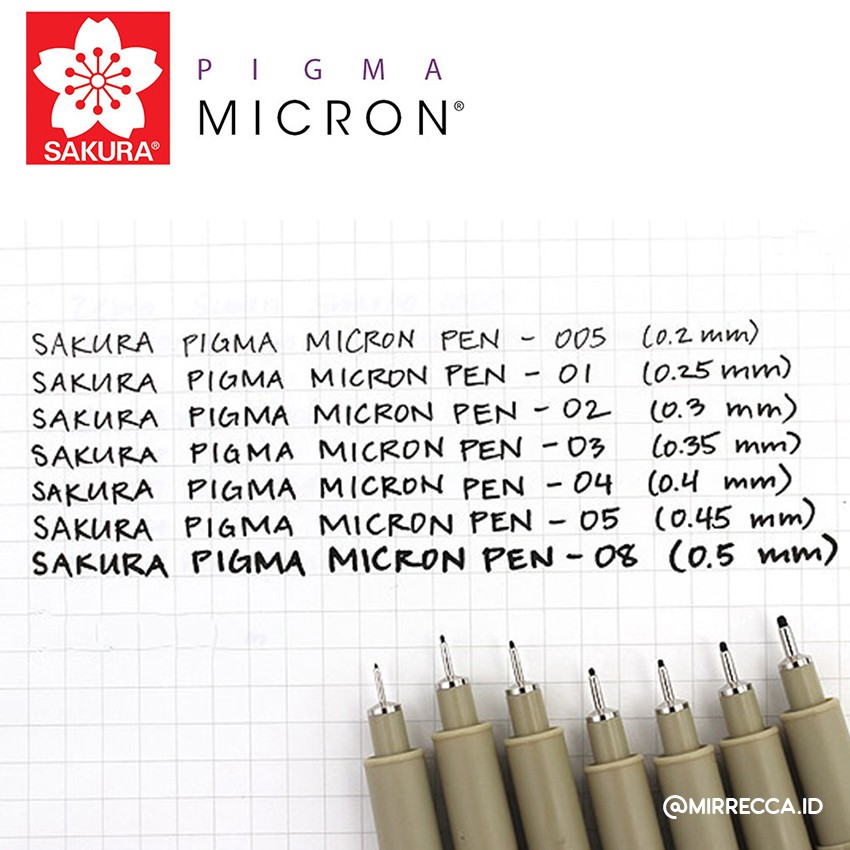 SAKURA®
PIGMA
MICRON®
SAKURA PIGMA MICRON PEN - 005 (0.2 mm)
SAKURA PIGMA MICRON PEN - 01 (0.25 mm)
SAKURA PIGMA MICRON PEN - 02 (0.3 mm)
SAKURA PIGMA MICRON PEN - 03 (0.35 mm)
SAKURA PIGMA MICRON PEN - 04 (0.4 mm)
SAKURA PIGMA MICRON PEN - 05 (0.45 mm)
SAKURA PIGMA MICRON PEN - 08 (0.5 mm)
@MIRRECCA.ID